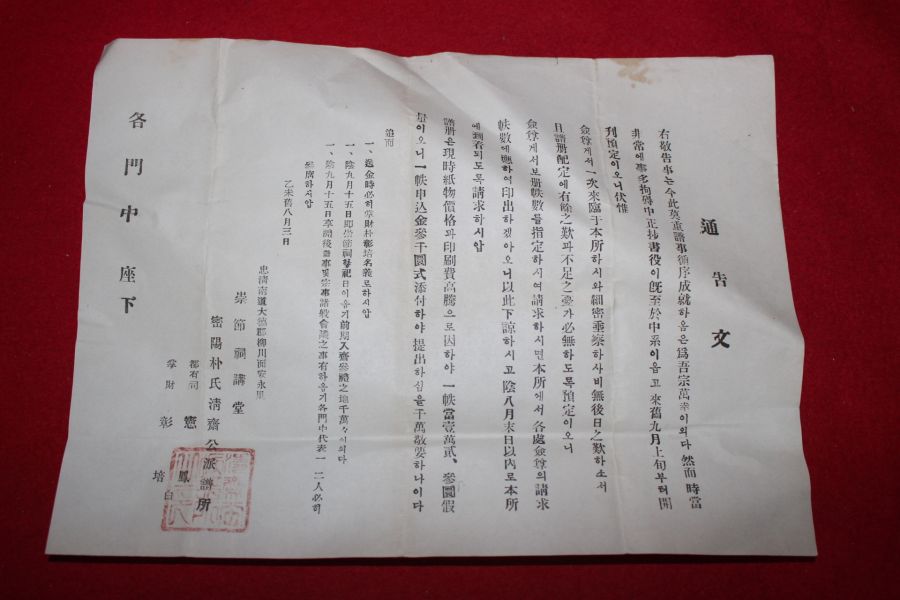 通告文
右敬告事는今此莫重譜事循序成就하옴은爲吾宗萬幸이외다 然而時當
非常에事多拘碍中正抄書役이旣至於中系이옵고來舊九月上旬부터開
刊預定이오니伏惟
僉尊게서一次來臨于本所하시와細密垂察하사비無後日之歎하소서
且譜册配定에有餘之歎과不足之憂가必無하도록預定이오니
僉尊게서보册帙數를指定하시여請求하시면本所에서各處僉尊의請求
帙數에應하여印出하겠아오니以此下諒하시고陰八月末日以內로本所
에 되도록請求하시압
譜册은現時紙物價格과印刷費高騰으로因하야一帙當壹萬貳、參圜假
量이오니一帙申込金參千圜式添付하야提出하심을千萬敬要하나이다
追而
一、送金時必히掌財朴彰培名義로하시압
一、陰九月十五日即崇節祠享祀日이옴기前期入齋參禮之地千萬 이외다
一、陰九月十五日享祀後 事및宗事諸般會議之事有하옴기各門中代表一二人必히
參席하시압
乙未舊八月三日
忠淸南道大德郡柳川面安永里
崇節祠講堂
密陽朴氏淸齋公派譜所
都有司 憲鳳
掌財 彰培 白
各門中座下